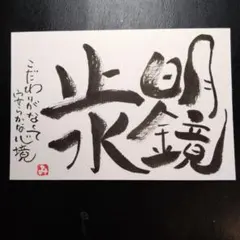 明鏡
止水
こだわりがなくて
安らかな心境